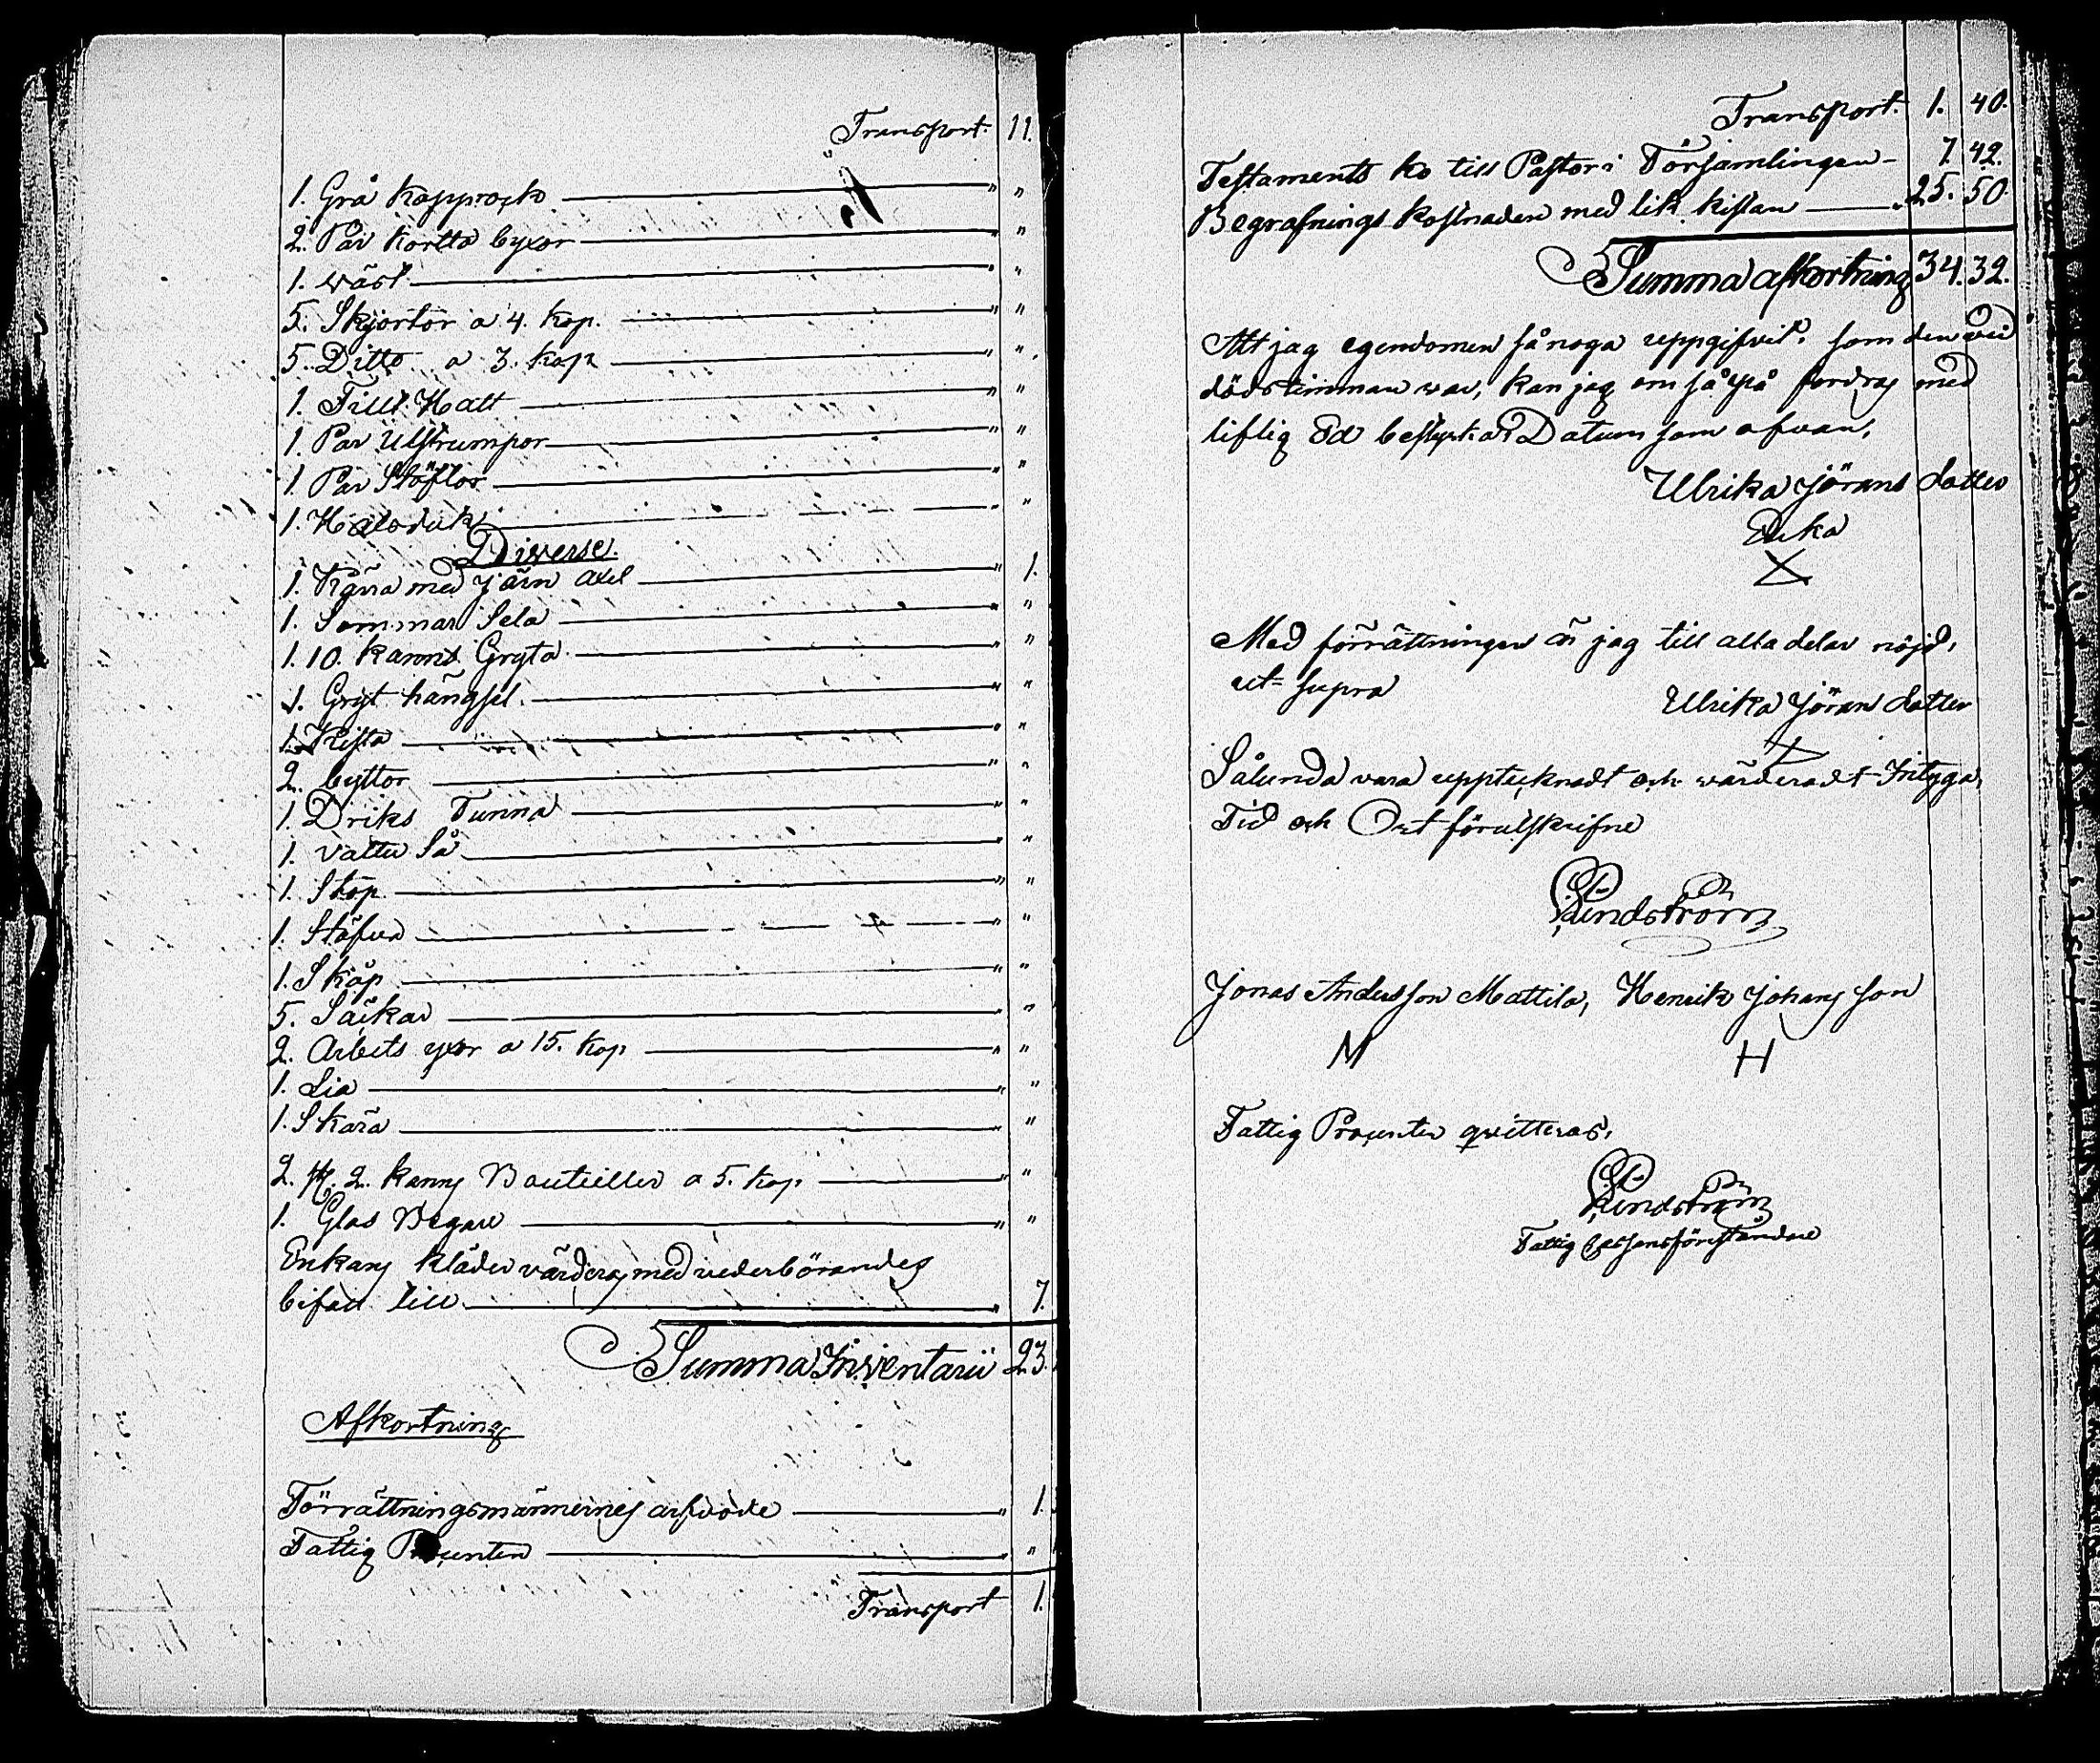 Transport. 11.
1. Grå Kapprock " "
2. Par Kortta byxor " "
1. wäst " "
5. Skjortor a 4. Kop. " "
5. Ditto a 3. Kop " "
1. Filtt Hatt " "
1. Par Ulstrumpor " "
1. Par Stöflor " "
1. Halsduk " "
Diverse.
1. Kärra med Järn axel " 1.
1. Sommar Sela " "
1. 10. Kanns Gryta " "
1. Gryt hängsel. " "
1. Kista " "
2. byttor " "
1. Driks Tunna " "
1. Vattu Så " "
1. Stop " "
1. Stäfva " "
1. Skåp " "
5. Säckar " "
2. Arbets yxor a 15. Kop " "
1. Lia " "
1. Skära " "
2. st. 2. kanns Bouteiller a 5. Kop " "
1. Glas Bägare " "
Enkans kläder värderas med vederbörandes
bifall till " 7.
Summa Inventarii 23.
Afkortning
Förrättningsmännernes arfvode " 1.
Fattig Procenten " "
Transport 1.
Transport. 1. 40.
Testaments ko till Pastor i Församlingen 7 42.
Begrafnings kostnaden med lik kistan 25. 50
Summa afkortning 34. 32.
Att jag egendomen så noga uppgifvit som den vid
dödstimman war, kan jag om så på fordras med
liflig Ed bestyrka. Datum som ofvan,
Ulrika Jörans dotter
Enka
X
Med förrättningen är jag till alla delar nöjd,
ut supra
Ulrika Jörans dotter
X
Sålunda vara upptecknadt och wärderadt Intyga,
Tid och Ort förutskrifne
Lindström
Jonas Andersson Mattila, Henrik Johansson
M H
Fattig Procenten qvitteras,
Lindström
Fattig Cassansföreståndare